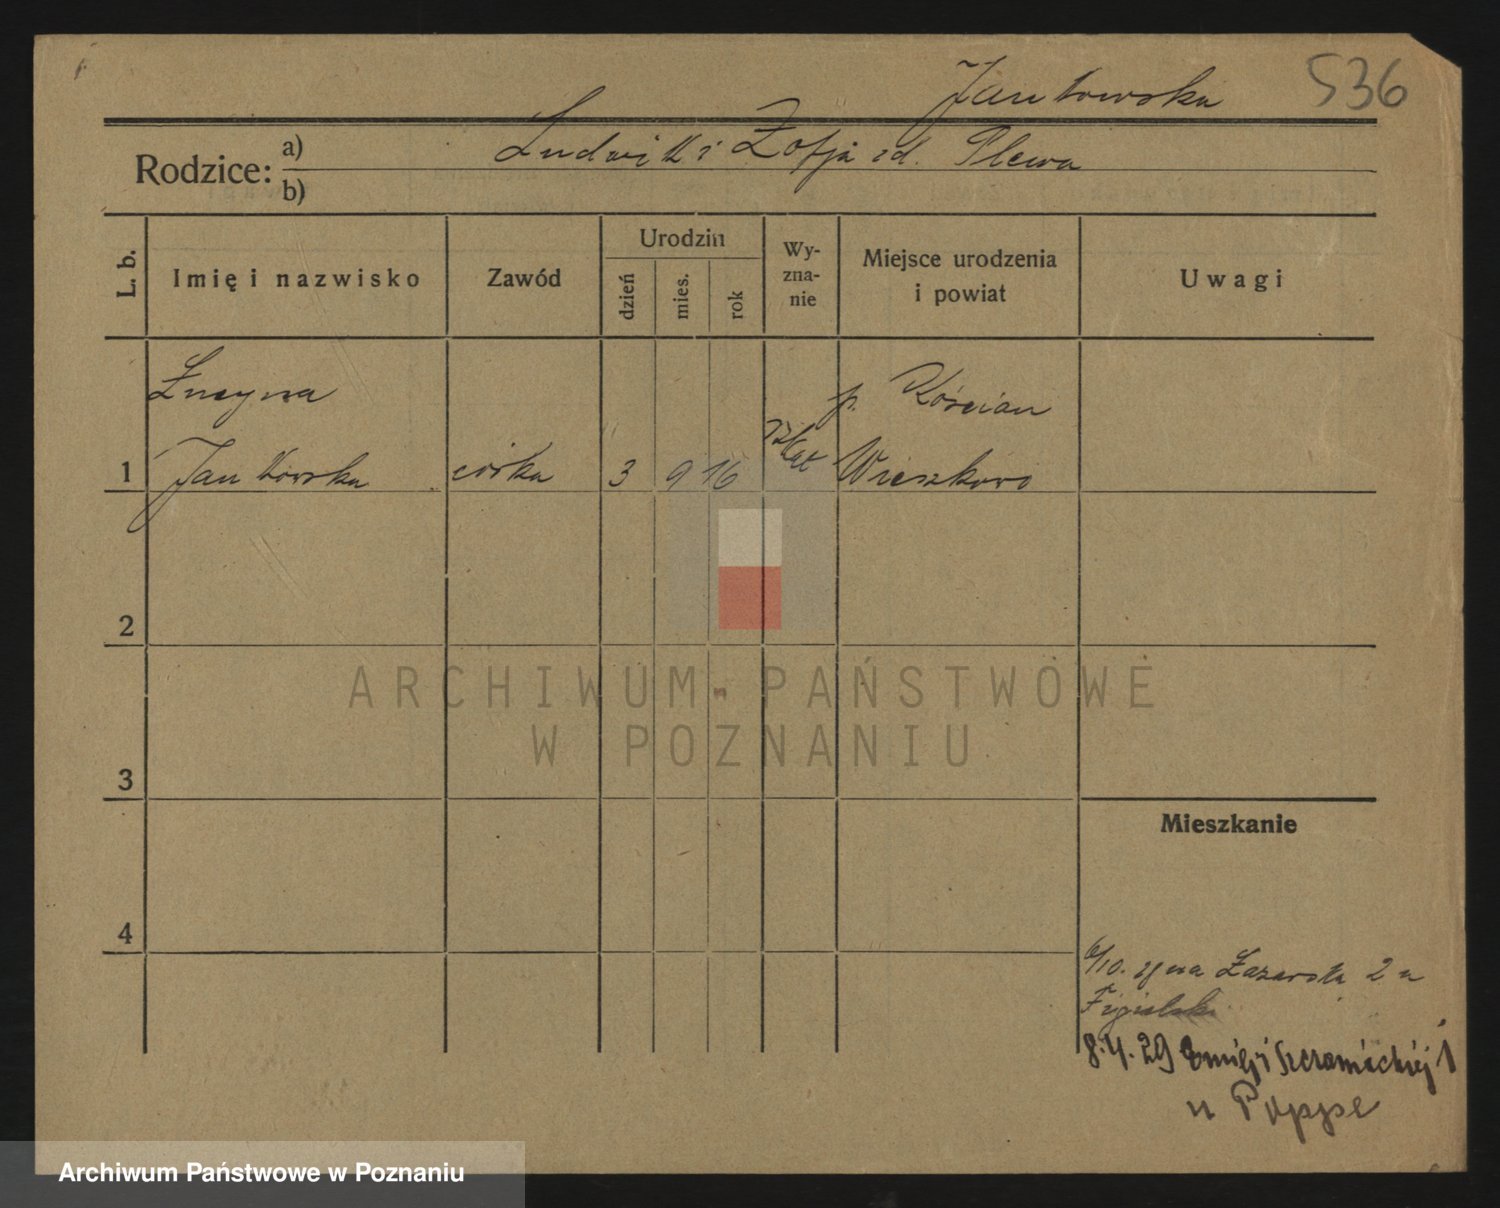 Jankowska 536
Rodzice: a) Ludwik i Zofja zd. Plewa
b)
L. b.
Imię i nazwisko
Zawód
Urodzin
dzień
mies.
rok
Wy-
zna-
nie
Miejsce urodzenia
i powiat
Uwagi
Lucyna p. Kościan
1 Jankowska córka 3 9 16 rz kat Wieszkowo
2
ARCHIWUM PAŃSTWOWE
W POZNANIU
3
Mieszkanie
4
6/10. Łazarska 2 u
Figielski
8.4.29 Emilji Sczanieckiej 1
u Poppe
Archiwum Państwowe w Poznaniu